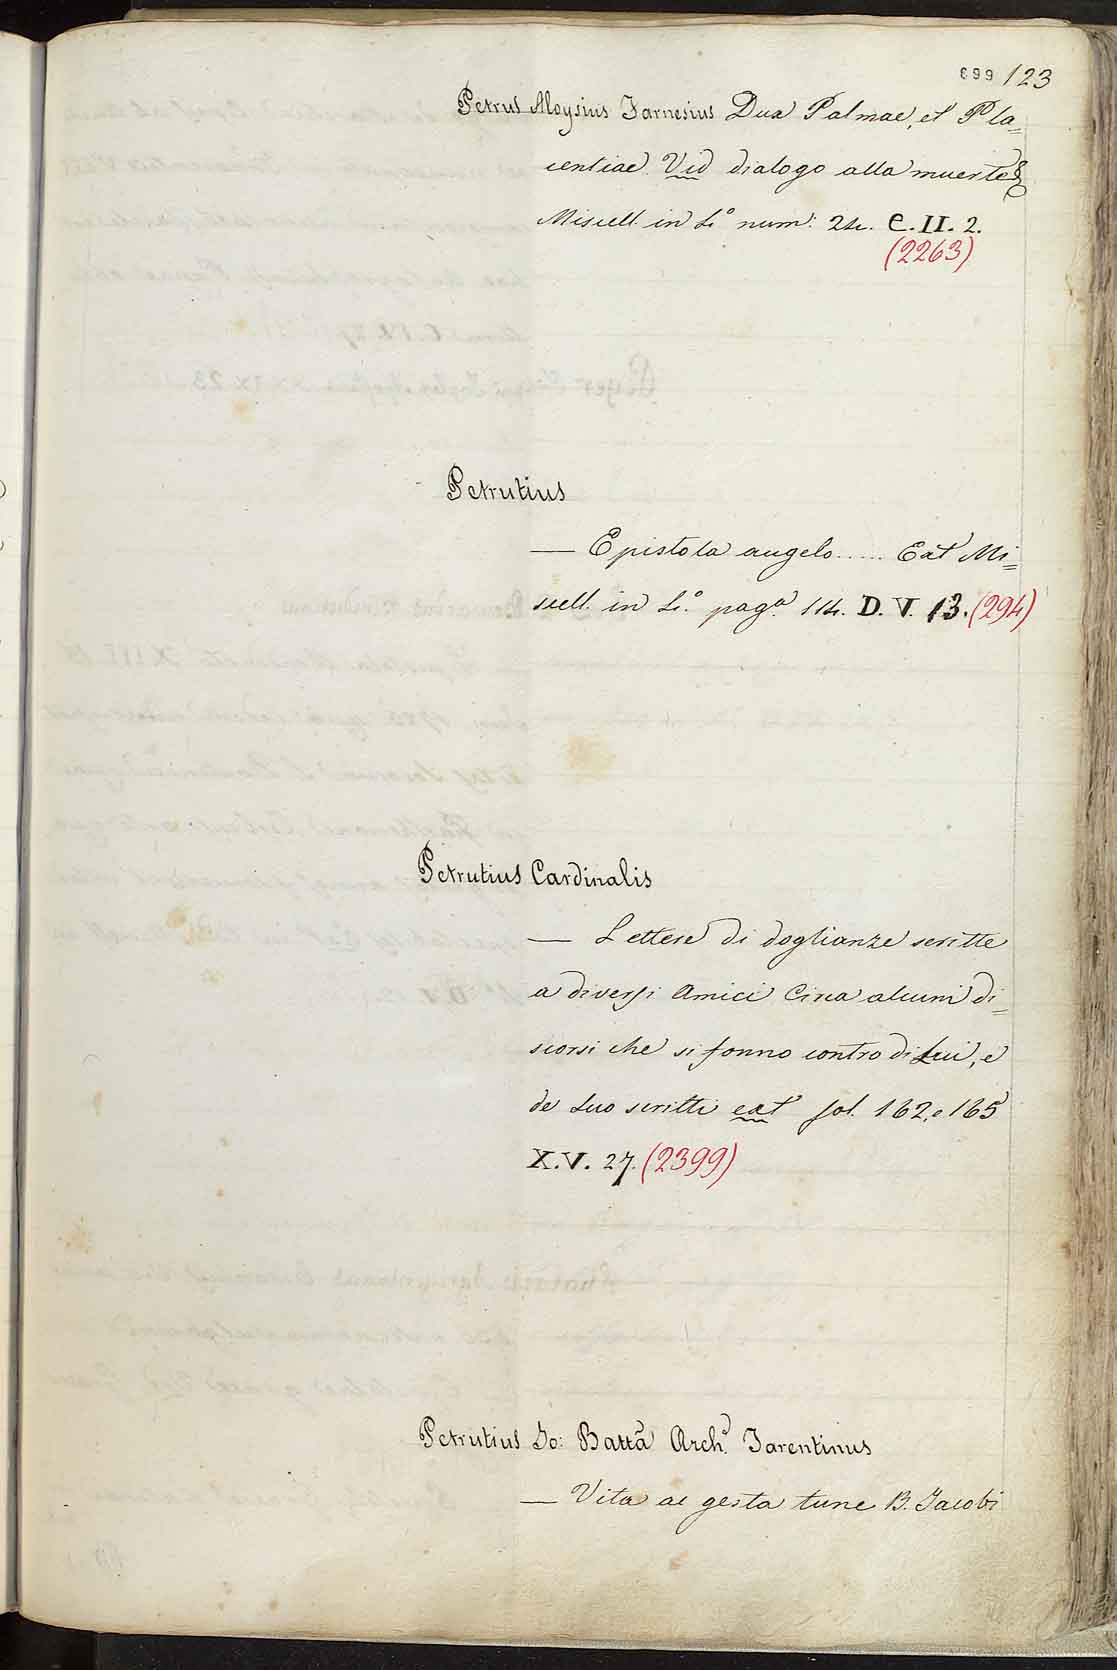 699 123
Petrus Aloysius Farnesius Dux Palmae, et Pla=
centiae Vid dialogo alla muerte &
Miscell. in 4.º num: 24. C. II. 2.
(2263)
Petrutius
— Epistola angelo..... Ext Mi=
scell. in 4.º pag.ª 114. D. V. 13. (294)
Petrutius Cardinalis
— Lettere di doglianze scritte
a diversi Amici Circa alcuni di=
scorsi che si fonno contro di Lui, e
de suo scritti ext fol. 162, e 165
X. V. 27. (2399)
Petrutius Jo: Batta Arch. Tarentinus
— Vita ac gesta tunc B. Jacobi